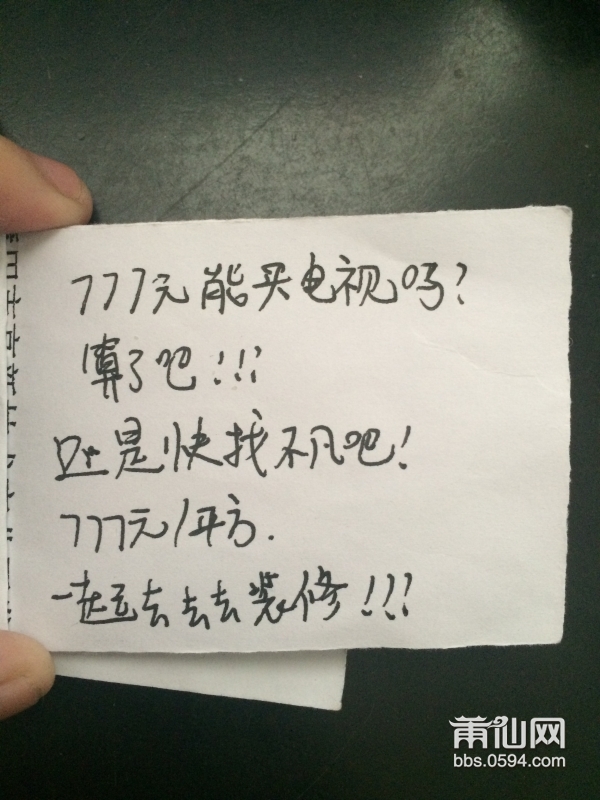 777元能买电视吗?
算了吧!!!
还是快找不凡吧!
777元/平方.
一起去去去装修!!!
莆仙网
bbs.0594.com